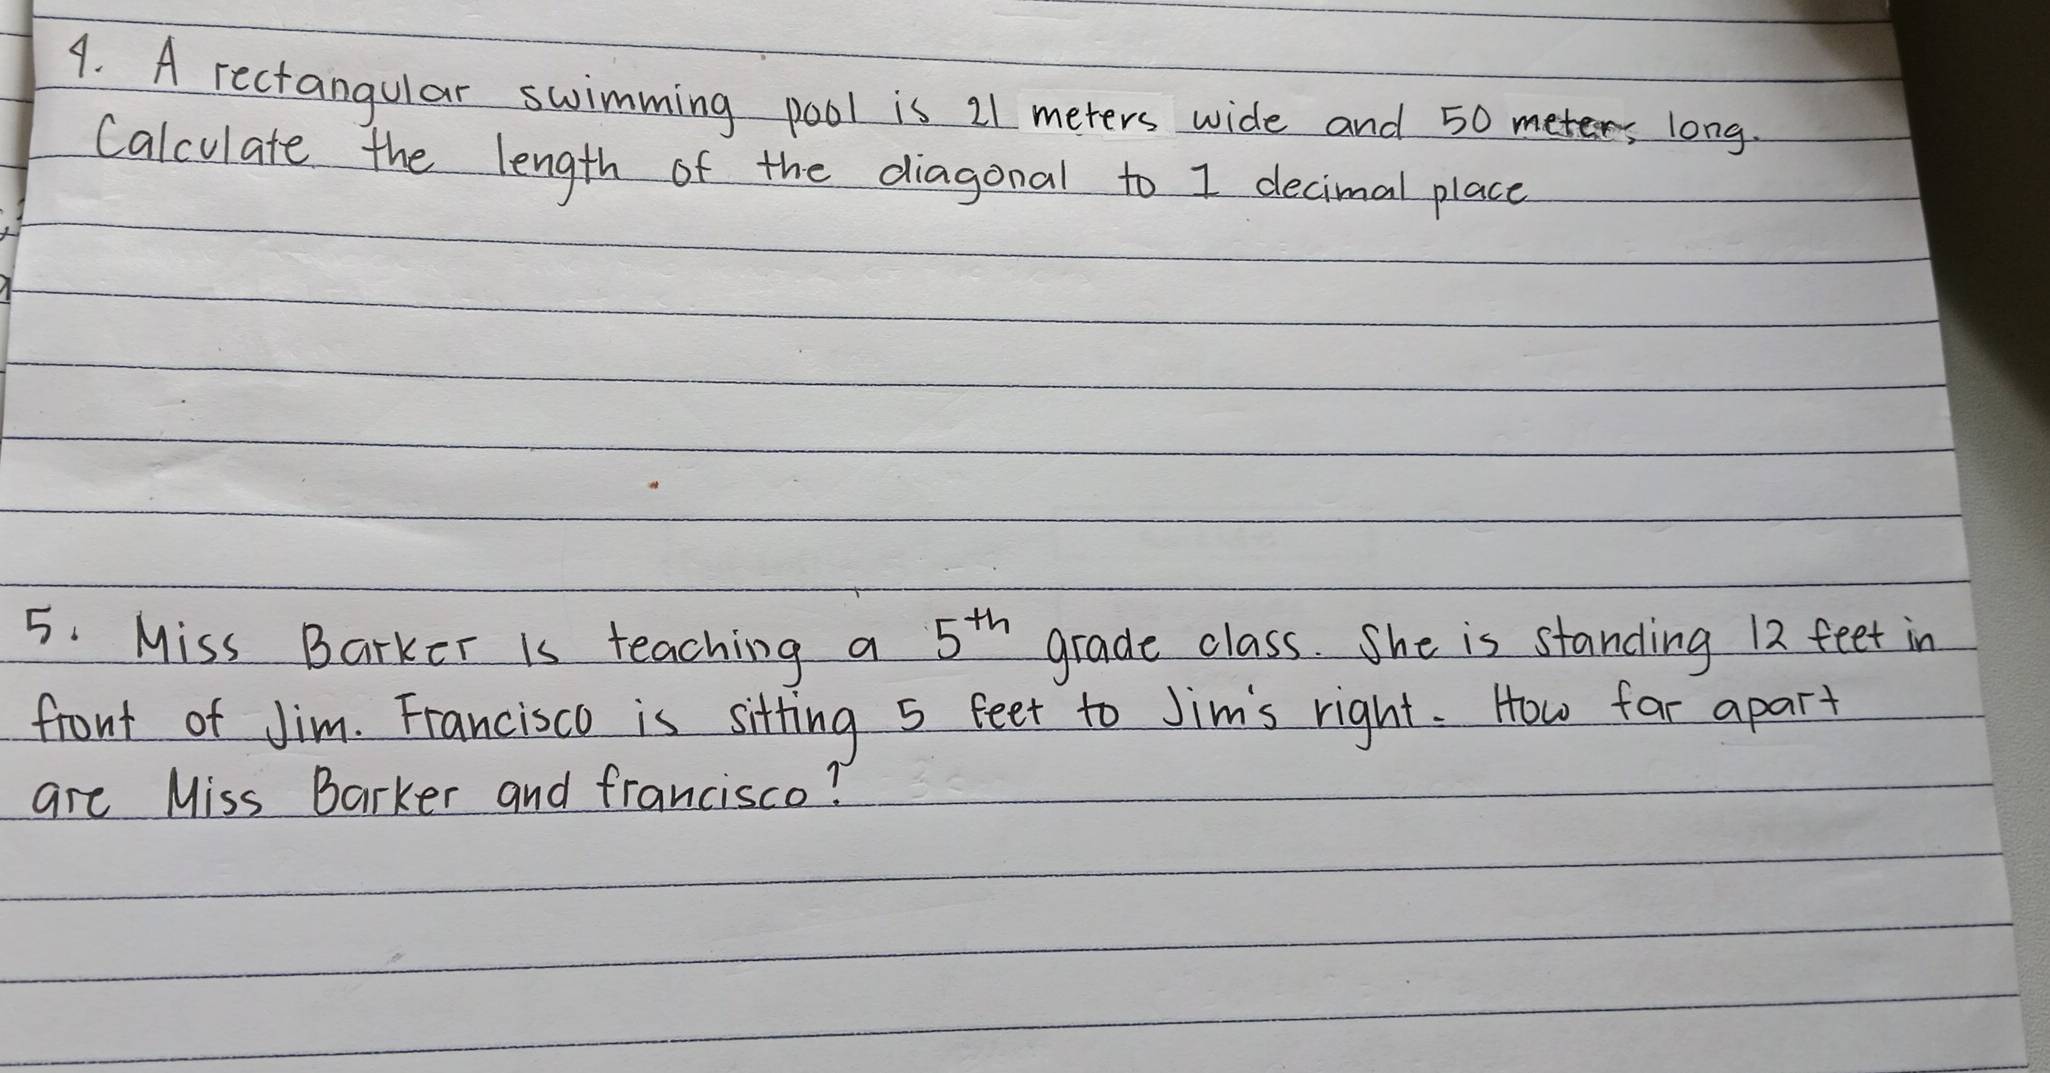 4. A rectangular swimming pool is 21 meters wide and 50 meters long.
Calculate the length of the diagonal to 1 decimal place
5. Miss Barker is teaching a 5th grade class. She is standing 12 feet in
front of Jim. Francisco is sitting 5 feet to Jim's right. How far apart
are Miss Barker and francisco?